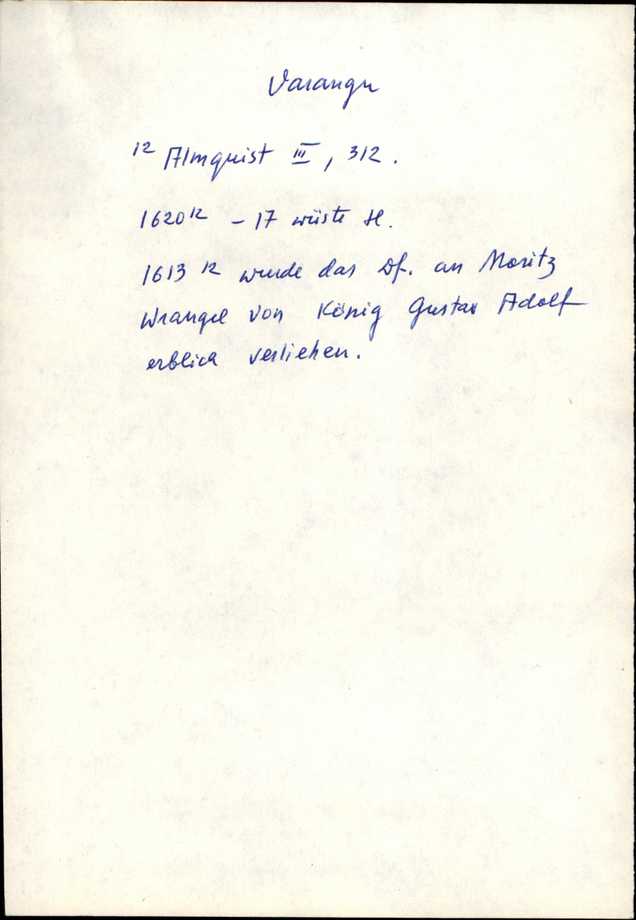 Varangu
¹² Almquist III, 312.
1620¹² – 17 wüste H.
1613¹² wurde das Df. an Moritz
Wrangel von König Gustav Adolf
erblich verliehen.